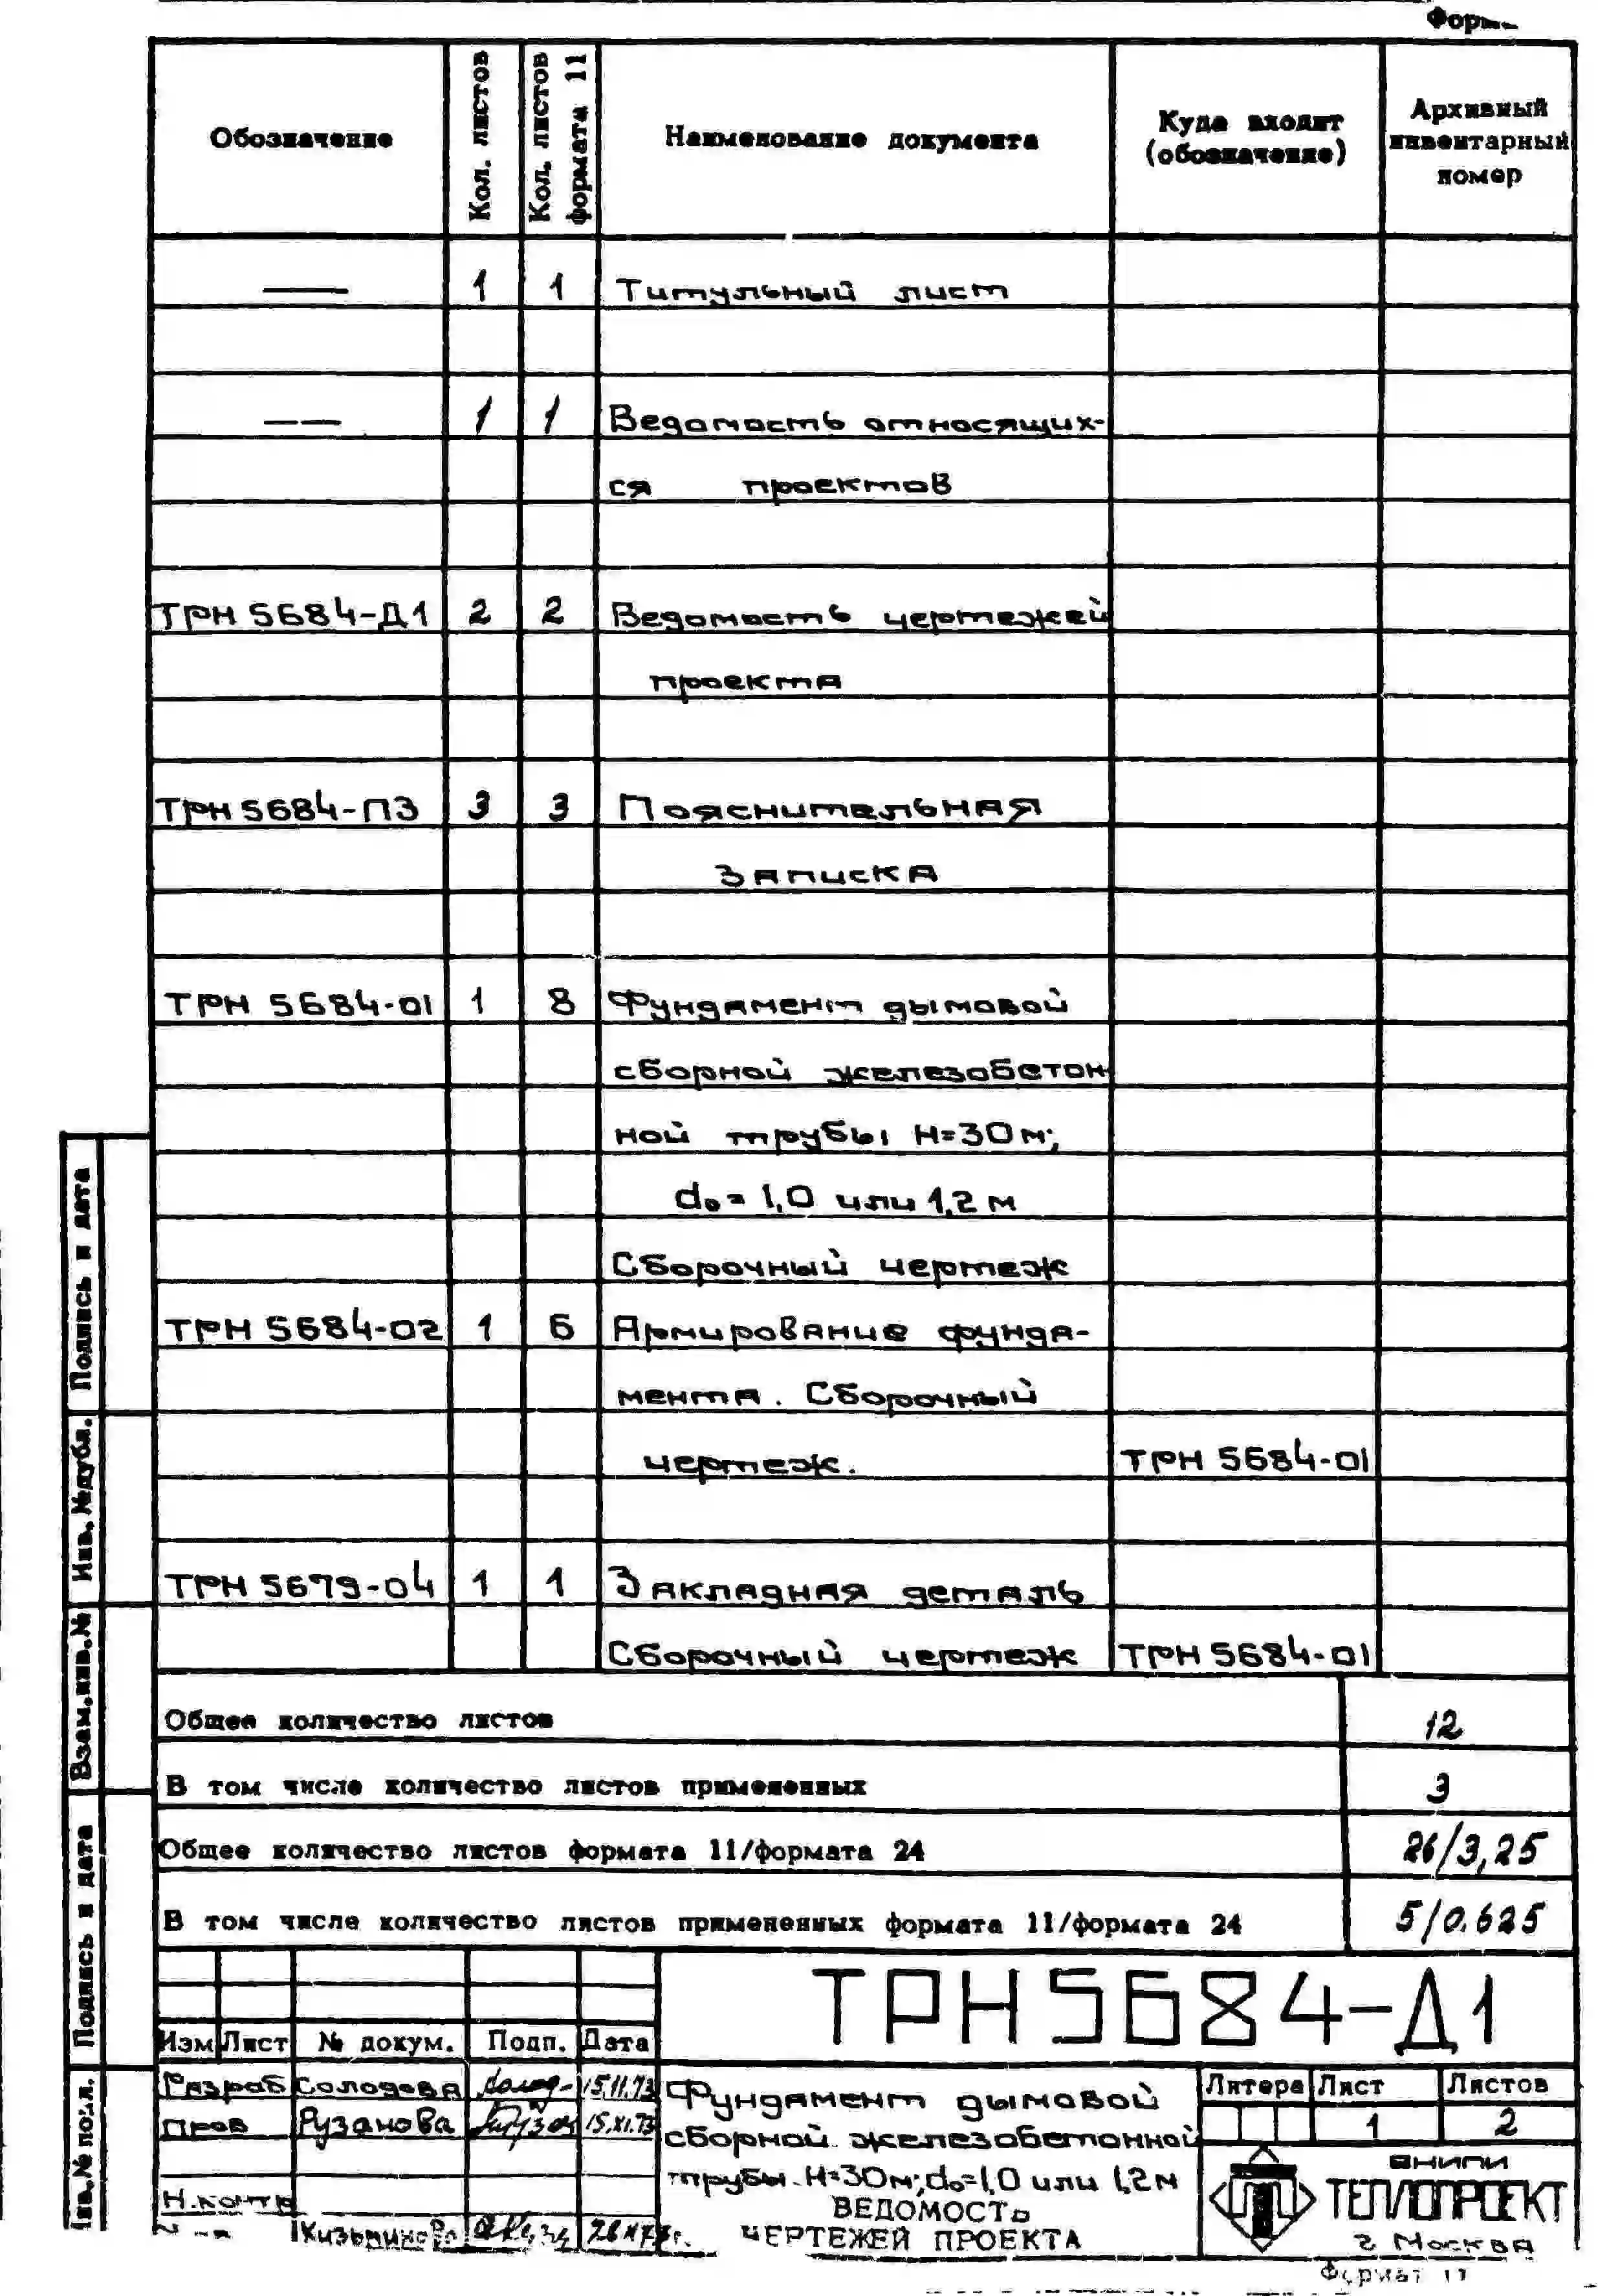 Обозначение
Кол. листов
Кол. листов
формата 11
Наименование документа
Куда входит
(обозначение)
Архивный
инвентарный
номер
— 1 1 Титульный лист
— 1 1 Ведомость относящих-
ся проектов
ТРН 5684-Д1 2 2 Ведомость чертежей
проекта
ТРН 5684-ПЗ 3 3 Пояснительная
записка
ТРН 5684-01 1 8 Фундамент дымовой
сборной железобетон
ной трубы H=30м;
d₀= 1,0 или 1,2 м
Сборочный чертеж
ТРН 5684-02 1 6 Армирование фунда-
мента. Сборочный
чертеж. ТРН 5684-01
ТРН 5679-04 1 1 Закладная деталь
Сборочный чертеж ТРН 5684-01
Общее количество листов 12
В том числе количество листов примененных 3
Общее количество листов формата 11/формата 24 26/3,25
В том числе количество листов примененных формата 11/формата 24 5/0.625
Подпись и дата
Инв. №дубл.
Взам.инв.№
Подпись и дата
Инв.№ подл.
ТРН 5684-Д1
Изм Лист № докум. Подп. Дата
Разраб Солодова 15.11.73
Пров Рузанова 15.XI.73
Н.контр
Фундамент дымовой
сборной железобетонной
трубы H=30м; d₀=1,0 или 1,2м
ВЕДОМОСТЬ
ЧЕРТЕЖЕЙ ПРОЕКТА
Литера Лист Листов
1 2
ВНИПИ
ТЕПЛОПРОЕКТ
г Москва
Формат 11